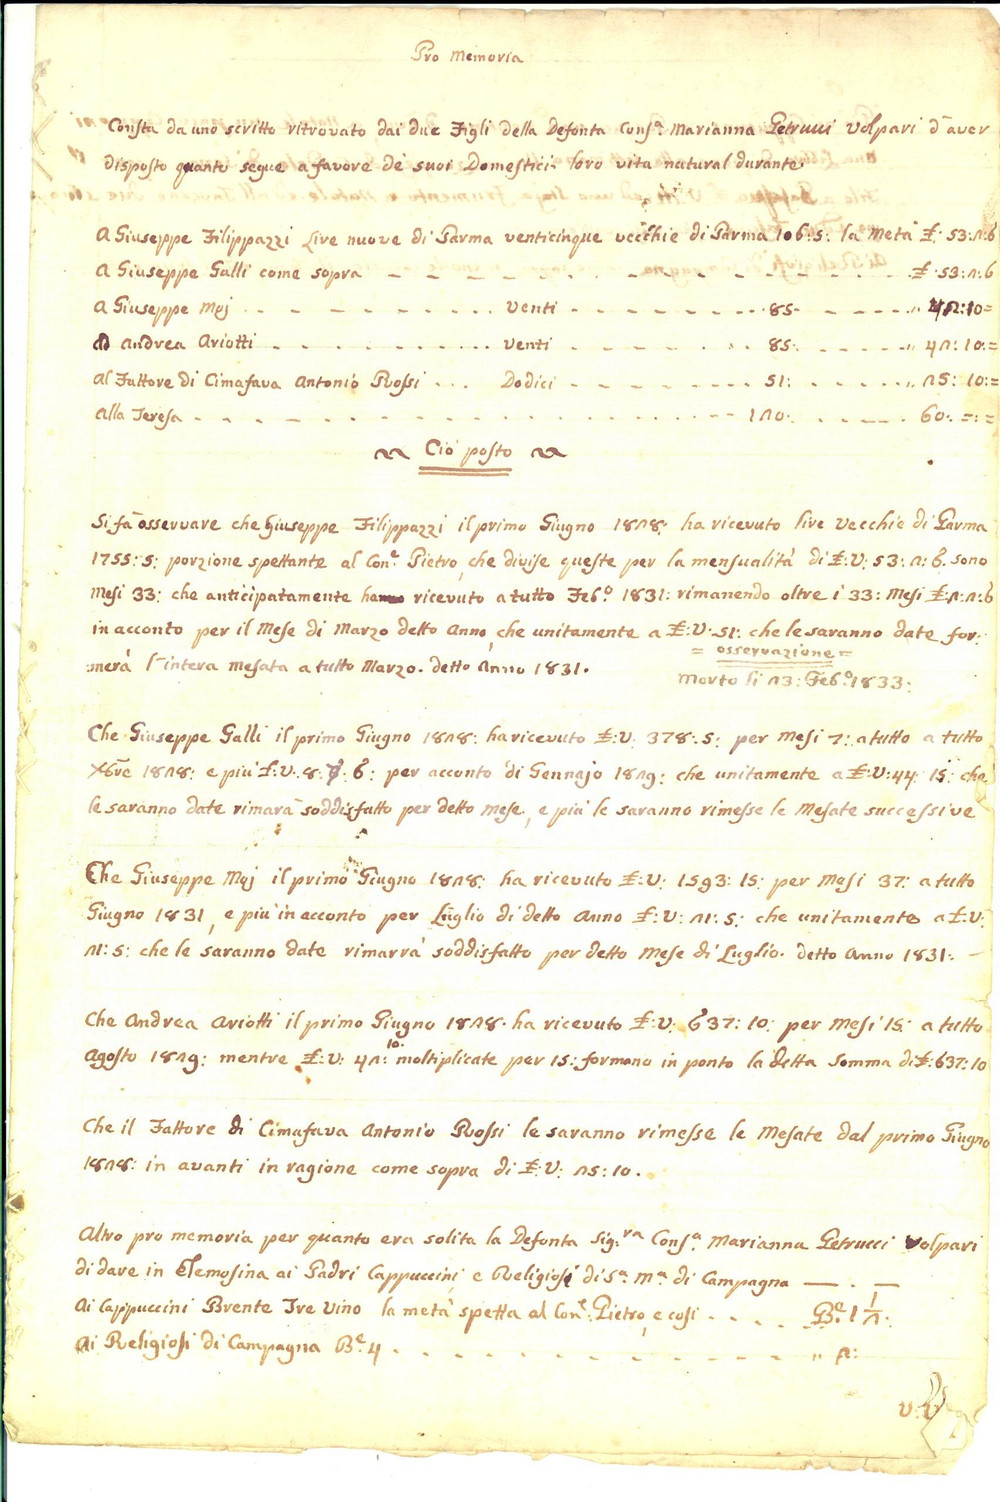 Pro Memoria
Consta da uno scritto ritrovato dai due Figli della Defonta Cons.ª Marianna Petrucci Volpari d'aver
disposto quanto segue a favore de' suoi Domestici loro vita natural durante
A Giuseppe Filippazzi Lire nuove di Parma venticinque vecchie di Parma 106:5: la metà £: 53:2:6
A Giuseppe Galli come sopra £: 53:2:6
A Giuseppe Moj venti 85: " 42:10=
Ad Andrea Ariotti venti 85: " 42:10:=
Al Fattore di Cimafava Antonio Rossi Dodici 51: " 25:10:=
Alla Teresa 120: 60:=:=
Ciò posto
Si fà osservare che Giuseppe Filippazzi il primo Giugno 1828: ha ricevuto lire vecchie di Parma
1755:5: porzione spettante al Con.e Pietro, che divise queste per la mensualità di £:V: 53:2:6. sono
Mesi 33: che anticipatamente ha ricevuto a tutto Feb.o 1831: rimanendo oltre i 33: Mesi £:2:2:6
in acconto per il Mese di Marzo detto Anno, che unitamente a £:V: 51: che le saranno date for:
merà l'intera mesata a tutto Marzo. detto Anno 1831.
= osservazione =
Morto li 23: Feb.o 1833:
Che Giuseppe Galli il primo Giugno 1828: ha ricevuto £:V: 378:5: per mesi 7: a tutto a tutto
Xbre 1828: e più £:V: 8:7:6: per acconto di Gennajo 1829: che unitamente a £:V: 44:15: che
le saranno date rimarà soddisfatto per detto mese, e più le saranno rimesse le Mesate successive
Che Giuseppe Moj il primo Giugno 1828: ha ricevuto £:V: 1593:15: per Mesi 37: a tutto
Giugno 1831, e più in acconto per Luglio di detto Anno £:V: 21:5: che unitamente a £:V:
21:5: che le saranno date rimarrà soddisfatto per detto Mese di Luglio. detto Anno 1831:
Che Andrea Ariotti il primo Giugno 1828. ha ricevuto £:V: 637:10: per Mesi 15: a tutto
Agosto 1829: mentre £:V: 42:10. moltiplicate per 15: formano in ponto la detta Somma di £:637:10
Che il Fattore di Cimafava Antonio Rossi le saranno rimesse le Mesate dal primo Giugno
1828: in avanti in ragione come sopra di £:V: 25:10.
Altro pro memoria per quanto era solita la Defonta Sig.ra Cons.ª Marianna Petrucci Volpari
di dare in Elemosina ai Padri Cappuccini, e Religiosi di S.ª M.ª di Campagna
Ai Cappuccini Brente Tre vino la metà spetta al Con.e Pietro, e così B.e 1 1/2:
Ai Religiosi di Campagna B.e 4 " 2:
V: V